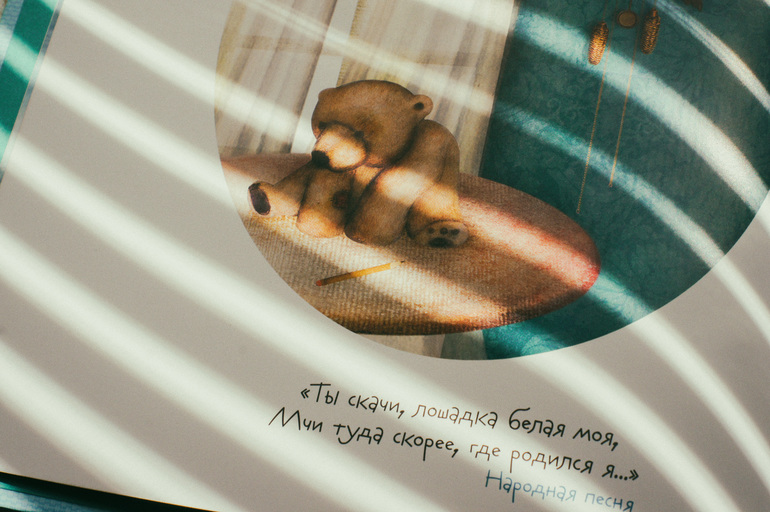 «Ты скачи, лошадка белая моя,
Мчи туда скорее, где родился я...»
Народная песня